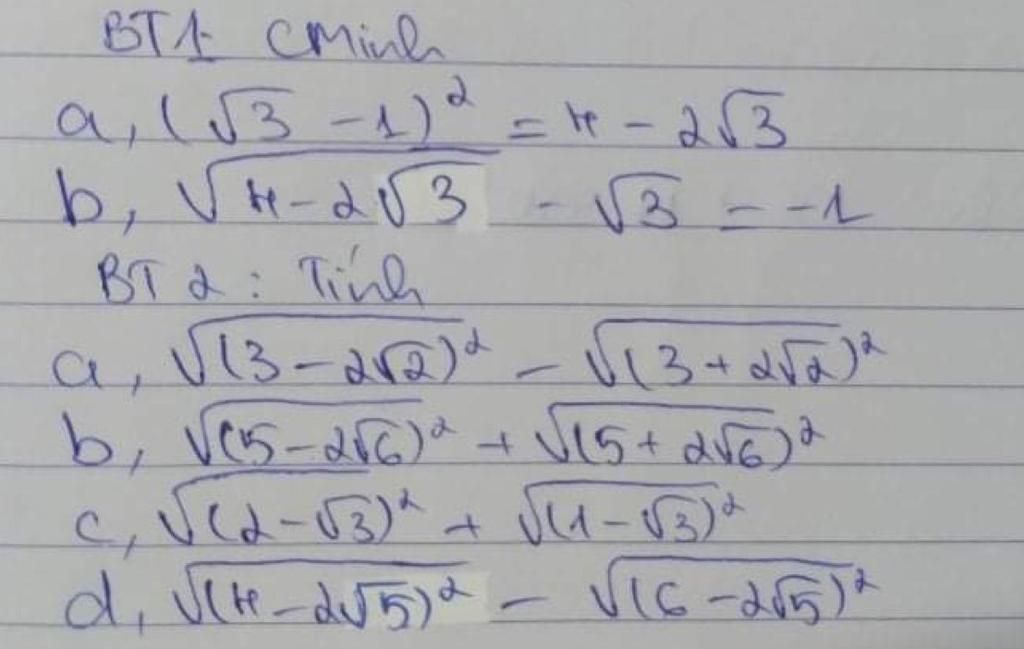 BT1: CMinh
a, (√3 - 1)² = 4 - 2√3
b, √(4 - 2√3) - √3 = -1
BT2: Tính
a, √(3 - 2√2)² - √(3 + 2√2)²
b, √(5 - 2√6)² + √(5 + 2√6)²
c, √(2 - √3)² + √(1 - √3)²
d, √(4 - 2√5)² - √(6 - 2√5)²